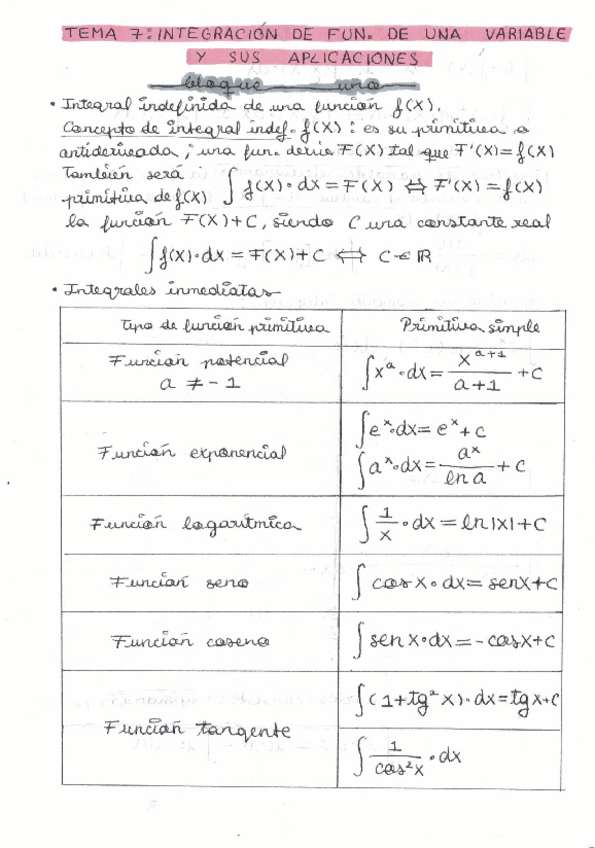 TEMA 7: INTEGRACIÓN DE FUN. DE UNA VARIABLE
Y SUS APLICACIONES
bloque uno
• Integral indefinida de una función f(X).
Concepto de integral indef. f(X) : es su primitiva o
antiderivada ; una fun. deriv F(X) tal que F'(X)=f(X)
También será
primitiva de f(X) ∫ f(X)·dx = F(X) ⇔ F'(X) = f(X)
la función F(X)+C, siendo C una constante real
∫ f(X)·dx = F(X)+C ⇔ C ∈ ℝ
• Integrales inmediatas
Tipo de función primitiva Primitiva simple
Función potencial
a ≠ -1 ∫ xᵃ·dx = x^(a+1)/(a+1) + C
Función exponencial ∫ eˣ·dx = eˣ + c
∫ aˣ·dx = aˣ/ln a + c
Función logarítmica ∫ 1/x · dx = ln|x| + C
Función seno ∫ cos x · dx = senx + C
Función coseno ∫ sen x·dx = -cosx+C
Función tangente ∫ (1+tg²x)·dx = tgx+C
∫ 1/cos²x · dx